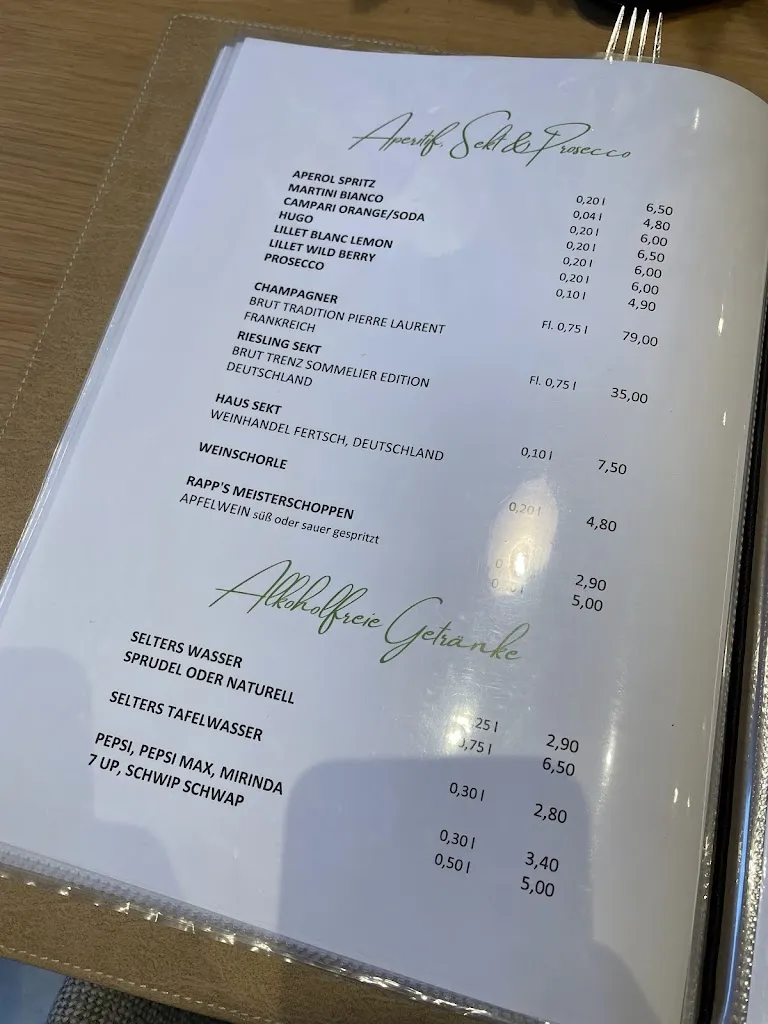 Aperitif, Sekt & Prosecco
APEROL SPRITZ 0,20 l 6,50
MARTINI BIANCO 0,04 l 4,80
CAMPARI ORANGE/SODA 0,20 l 6,00
HUGO 0,20 l 6,50
LILLET BLANC LEMON 0,20 l 6,00
LILLET WILD BERRY 0,20 l 6,00
PROSECCO 0,10 l 4,90
CHAMPAGNER
BRUT TRADITION PIERRE LAURENT Fl. 0,75 l 79,00
FRANKREICH
RIESLING SEKT
BRUT TRENZ SOMMELIER EDITION Fl. 0,75 l 35,00
DEUTSCHLAND
HAUS SEKT
WEINHANDEL FERTSCH, DEUTSCHLAND 0,10 l 7,50
WEINSCHORLE 0,20 l 4,80
RAPP'S MEISTERSCHOPPEN
APFELWEIN süß oder sauer gespritzt 2,90
5,00
Alkoholfreie Getränke
SELTERS WASSER ,25 l 2,90
SPRUDEL ODER NATURELL 0,75 l 6,50
SELTERS TAFELWASSER 0,30 l 2,80
PEPSI, PEPSI MAX, MIRINDA 0,30 l 3,40
7 UP, SCHWIP SCHWAP 0,50 l 5,00